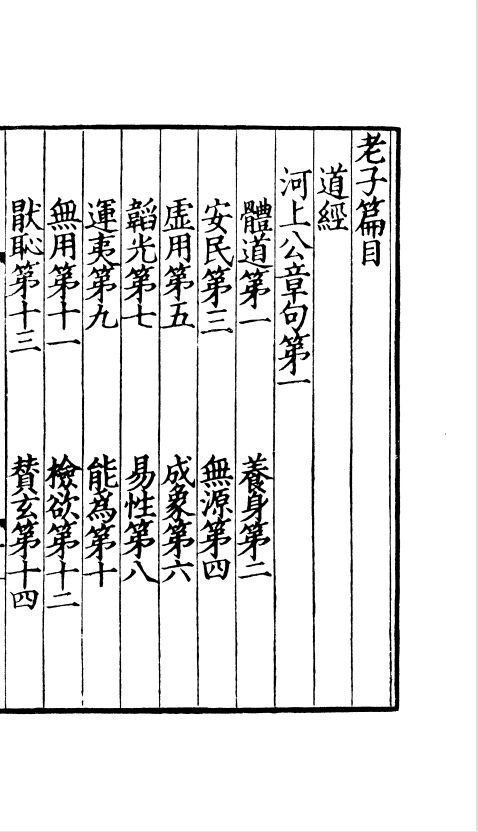 老子篇目
道經
河上公章句第一
體道第一 養身第二
安民第三 無源第四
虚用第五 成象第六
韜光第七 易性第八
運夷第九 能為第十
無用第十一 檢欲第十二
猒恥第十三 賛玄第十四